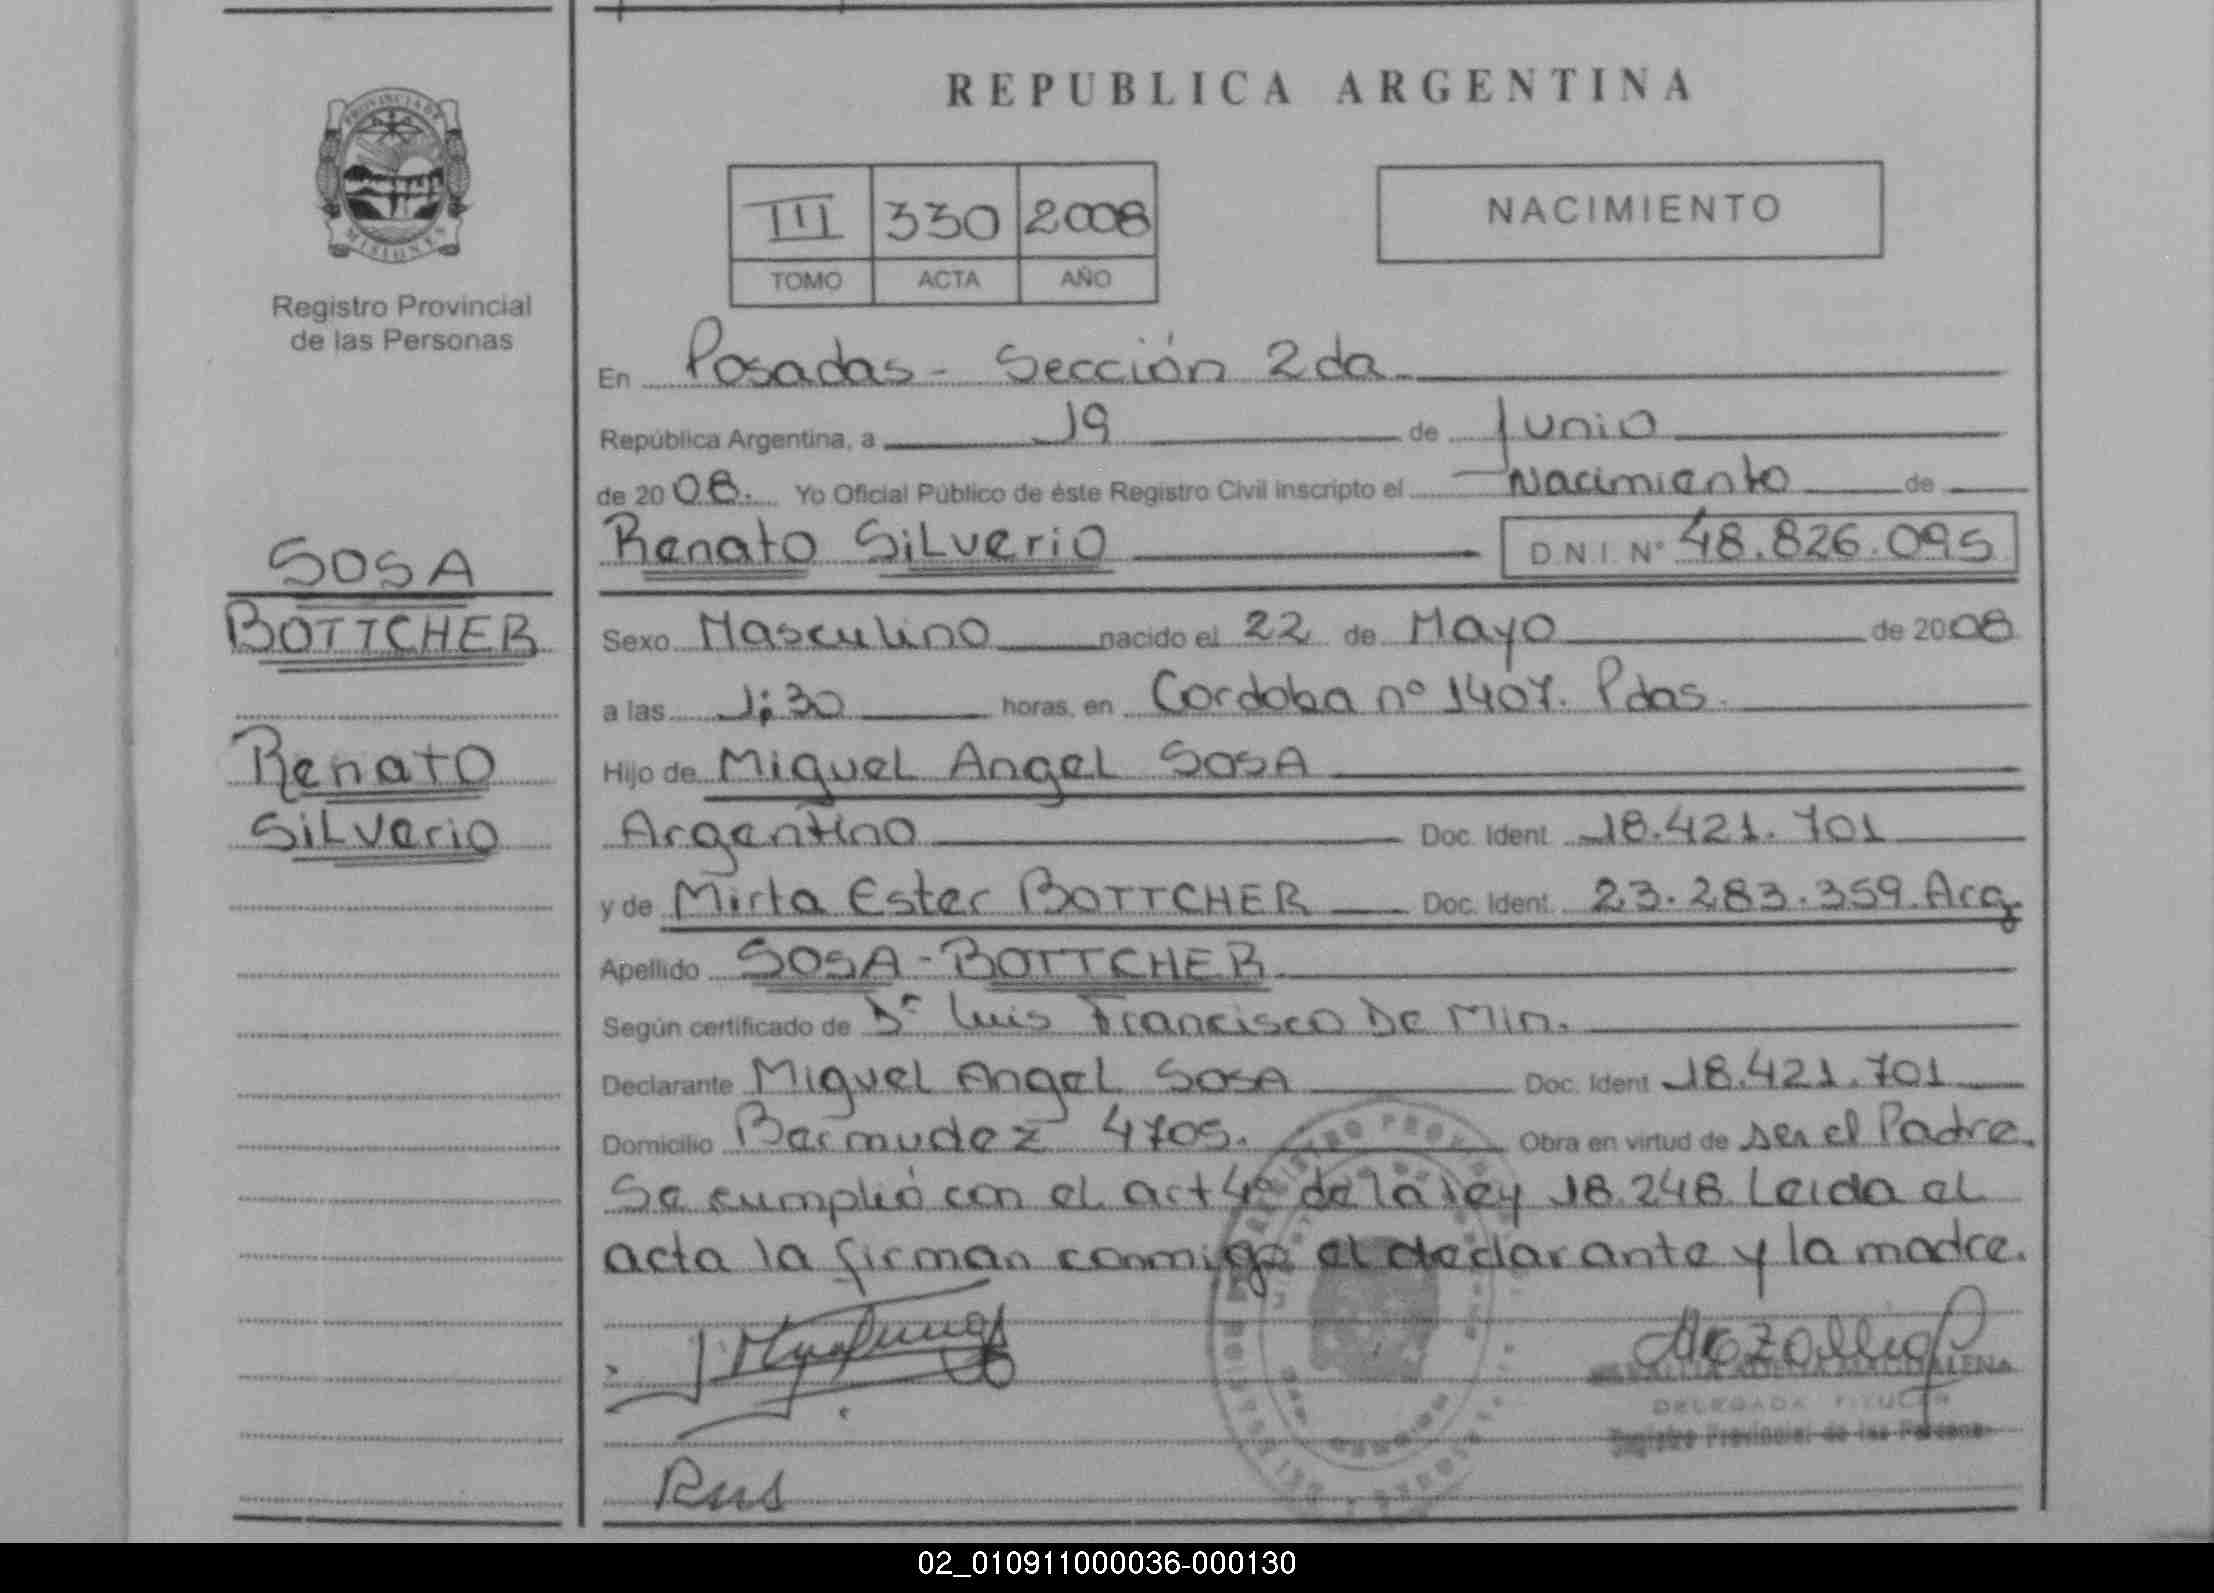 REPUBLICA ARGENTINA
PROVINCIA DE
MISIONES
Registro Provincial
de las Personas
III 330 2008
TOMO ACTA AÑO
NACIMIENTO
SOSA
BOTTCHER
Renato
SiLverio
En Posadas - Sección 2da
República Argentina, a 19 de Junio
de 2008. Yo Oficial Público de éste Registro Civil inscripto el Nacimiento de
Renato SiLverio D.N.I. Nº 48.826.095
Sexo Masculino nacido el 22 de Mayo de 2008
a las 1:30 horas, en Cordoba nº 1407. Pdas.
Hijo de Miguel Angel SOSA
Argentino Doc. Ident. 18.421.701
y de Mirta Ester BOTTCHER Doc. Ident. 23.283.359. Arg
Apellido SOSA-BOTTCHER
Según certificado de Dr Luis Francisco De Min.
Declarante Miguel Angel SOSA Doc. Ident 18.421.701
Domicilio Bermudez 4705. Obra en virtud de ser el Padre.
Se cumplió con el art 4º de la ley 18.248. Leida el
acta la firman conmigo el declarante y la madre.
DELEGADA TITULAR
Registro Provincial de las Personas
02_010911000036-000130